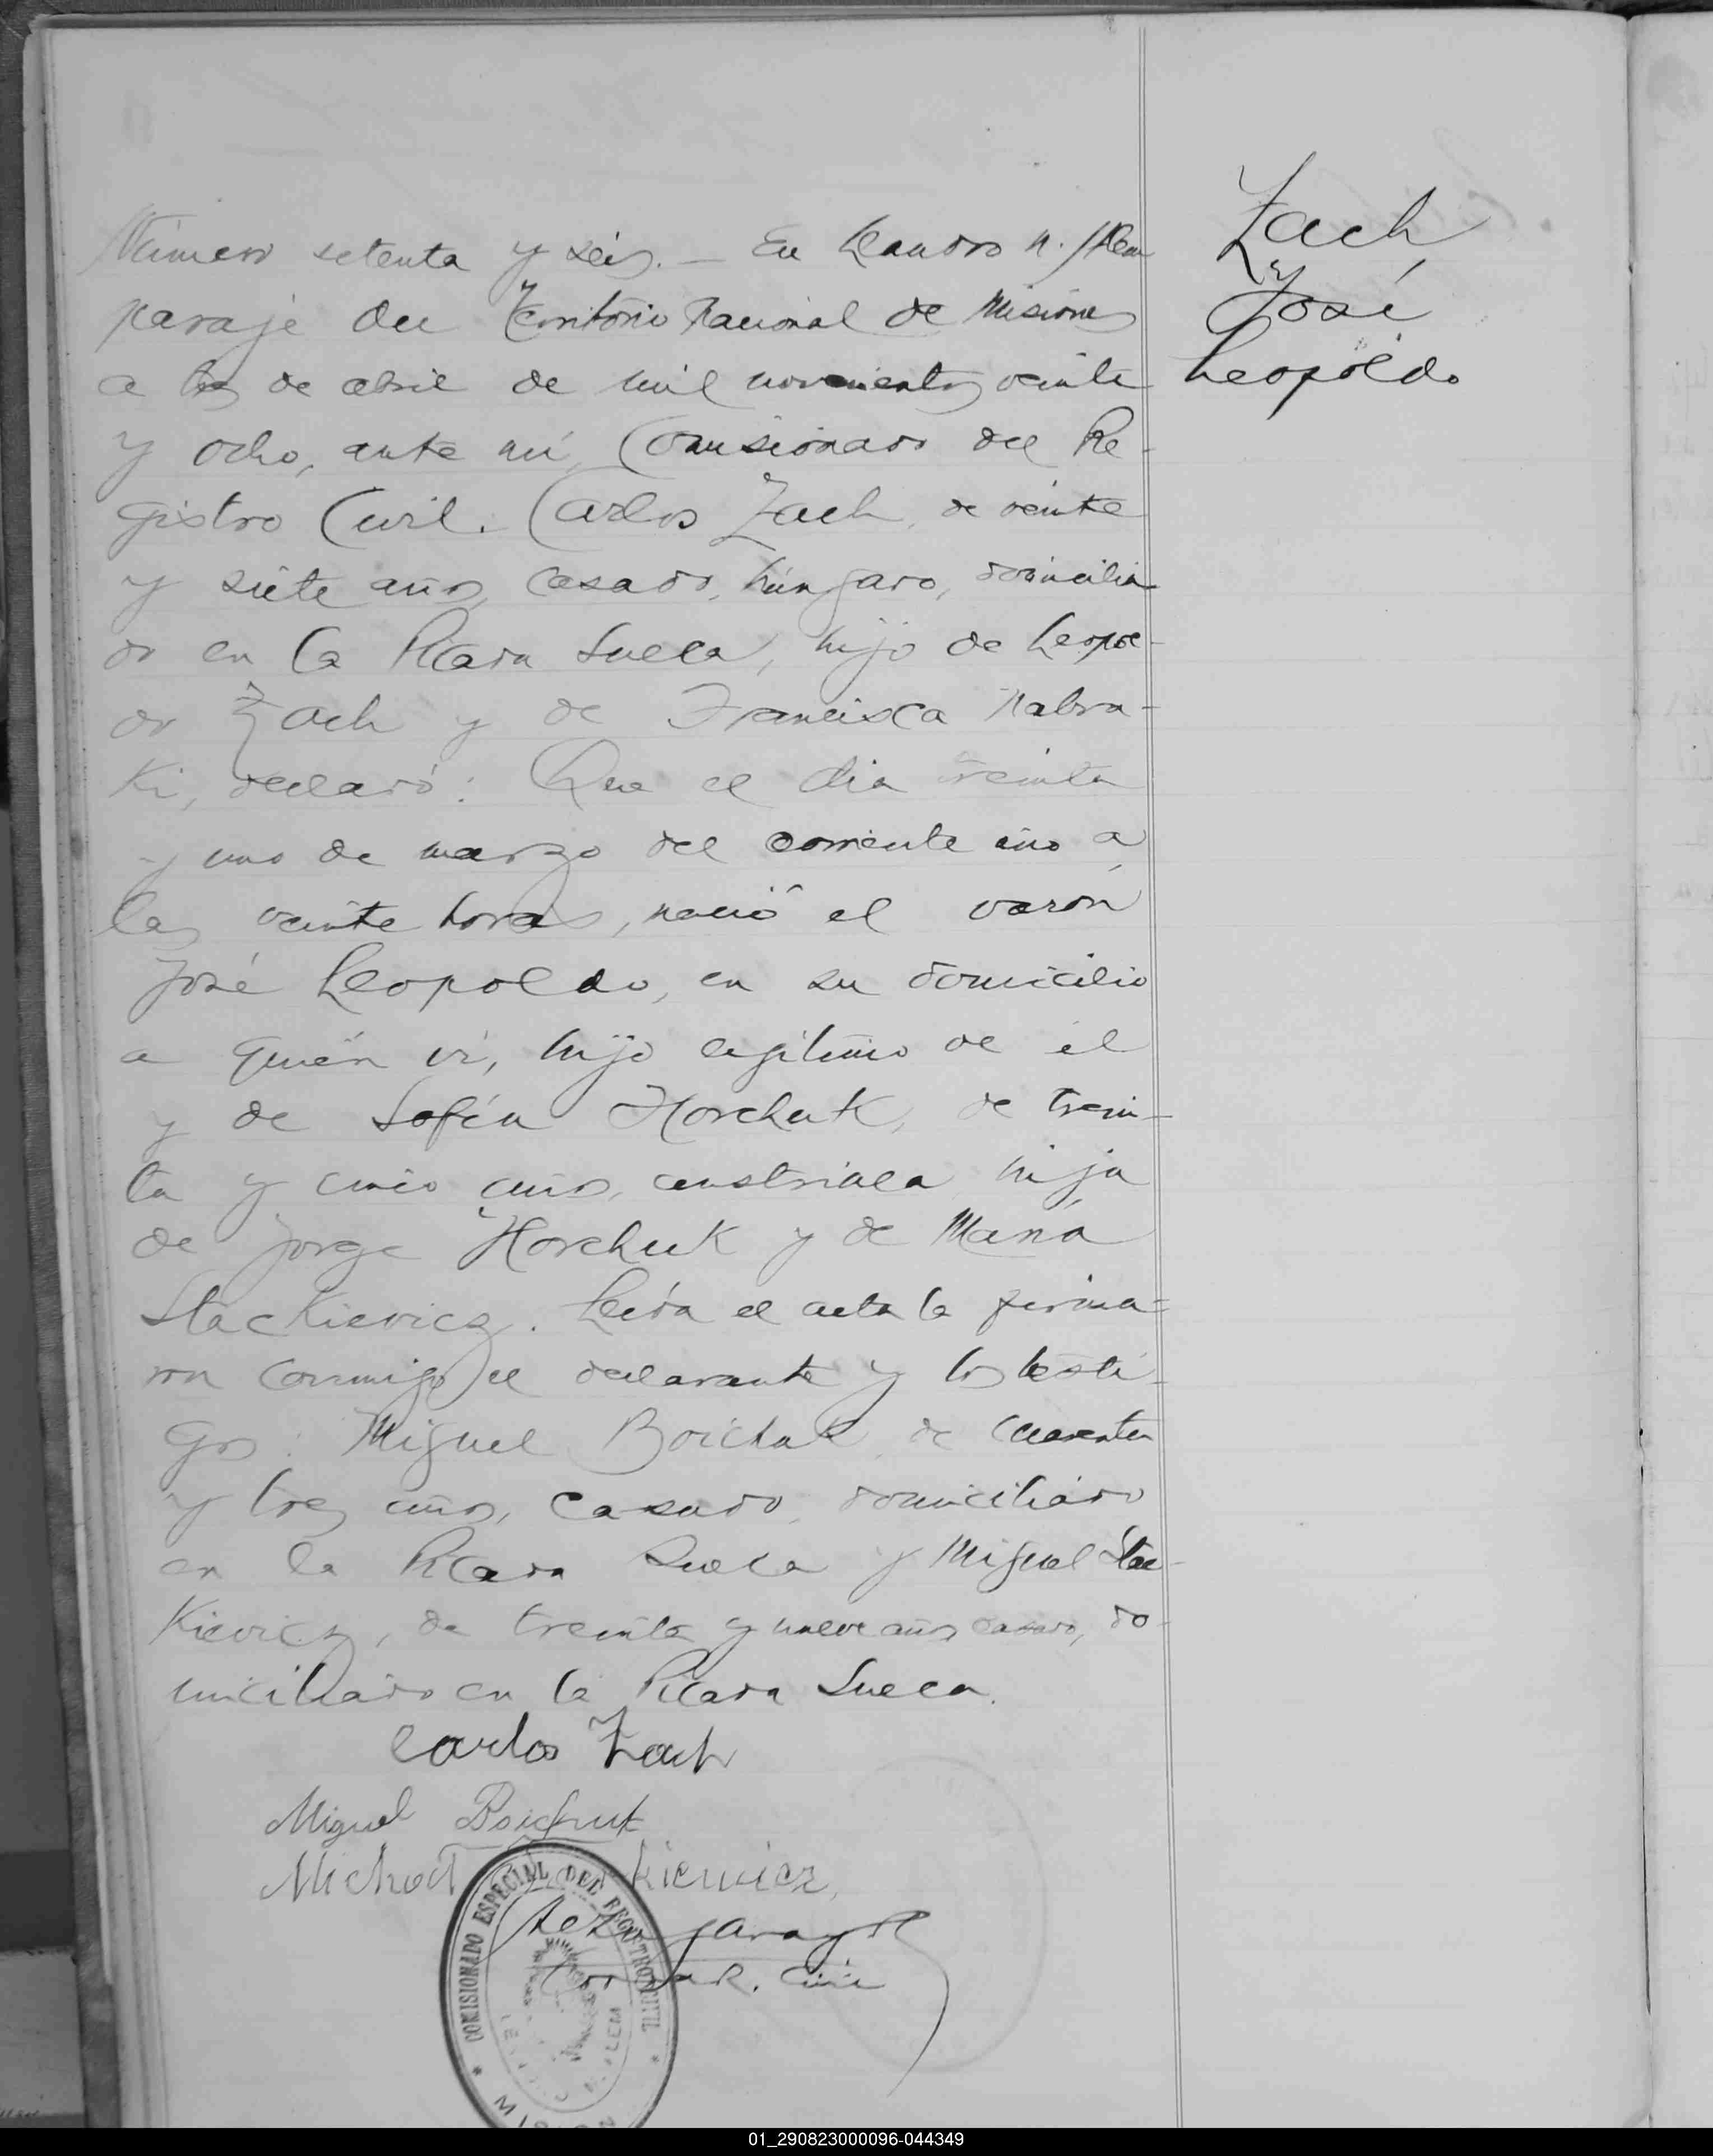 Zach
José
Leopoldo
Número setenta y seis. — En Leandro N. Alem
paraje del Territorio Nacional de Misiones
a tres de abril de mil novecientos veinte
y ocho, ante mí, Comisionado del Re-
gistro Civil. Carlos Zach, de veinte
y siete años, casado, húngaro, domicilia
do en la Picada Sueca, hijo de Leopol-
do Zach y de Francisca Nabra-
ki, declaró: Que el día treinta
y uno de marzo del corriente año a
las veinte horas, nació el varón
José Leopoldo, en su domicilio
a quién ví, hijo legítimo de él
y de Sofía Horchuk, de trein-
ta y cinco años, austriaca hija
de Jorge Horchuk y de María
Stackievicz. Leída el acta la firma-
ron conmigo el declarante y los testi-
gos: Miguel Boichuk de cuarenta
y tres años, casado, domiciliado
en la Picada Sueca y Miguel Stac-
kievicz, de treinta y nueve años casado, do-
miciliado en la Picada Sueca.
Carlos Zach
Miguel Boichuk
Michał kiewicz
Garay
R. Civil
COMISIONADO ESPECIAL DEL REGISTRO CIVIL
01_290823000096-044349